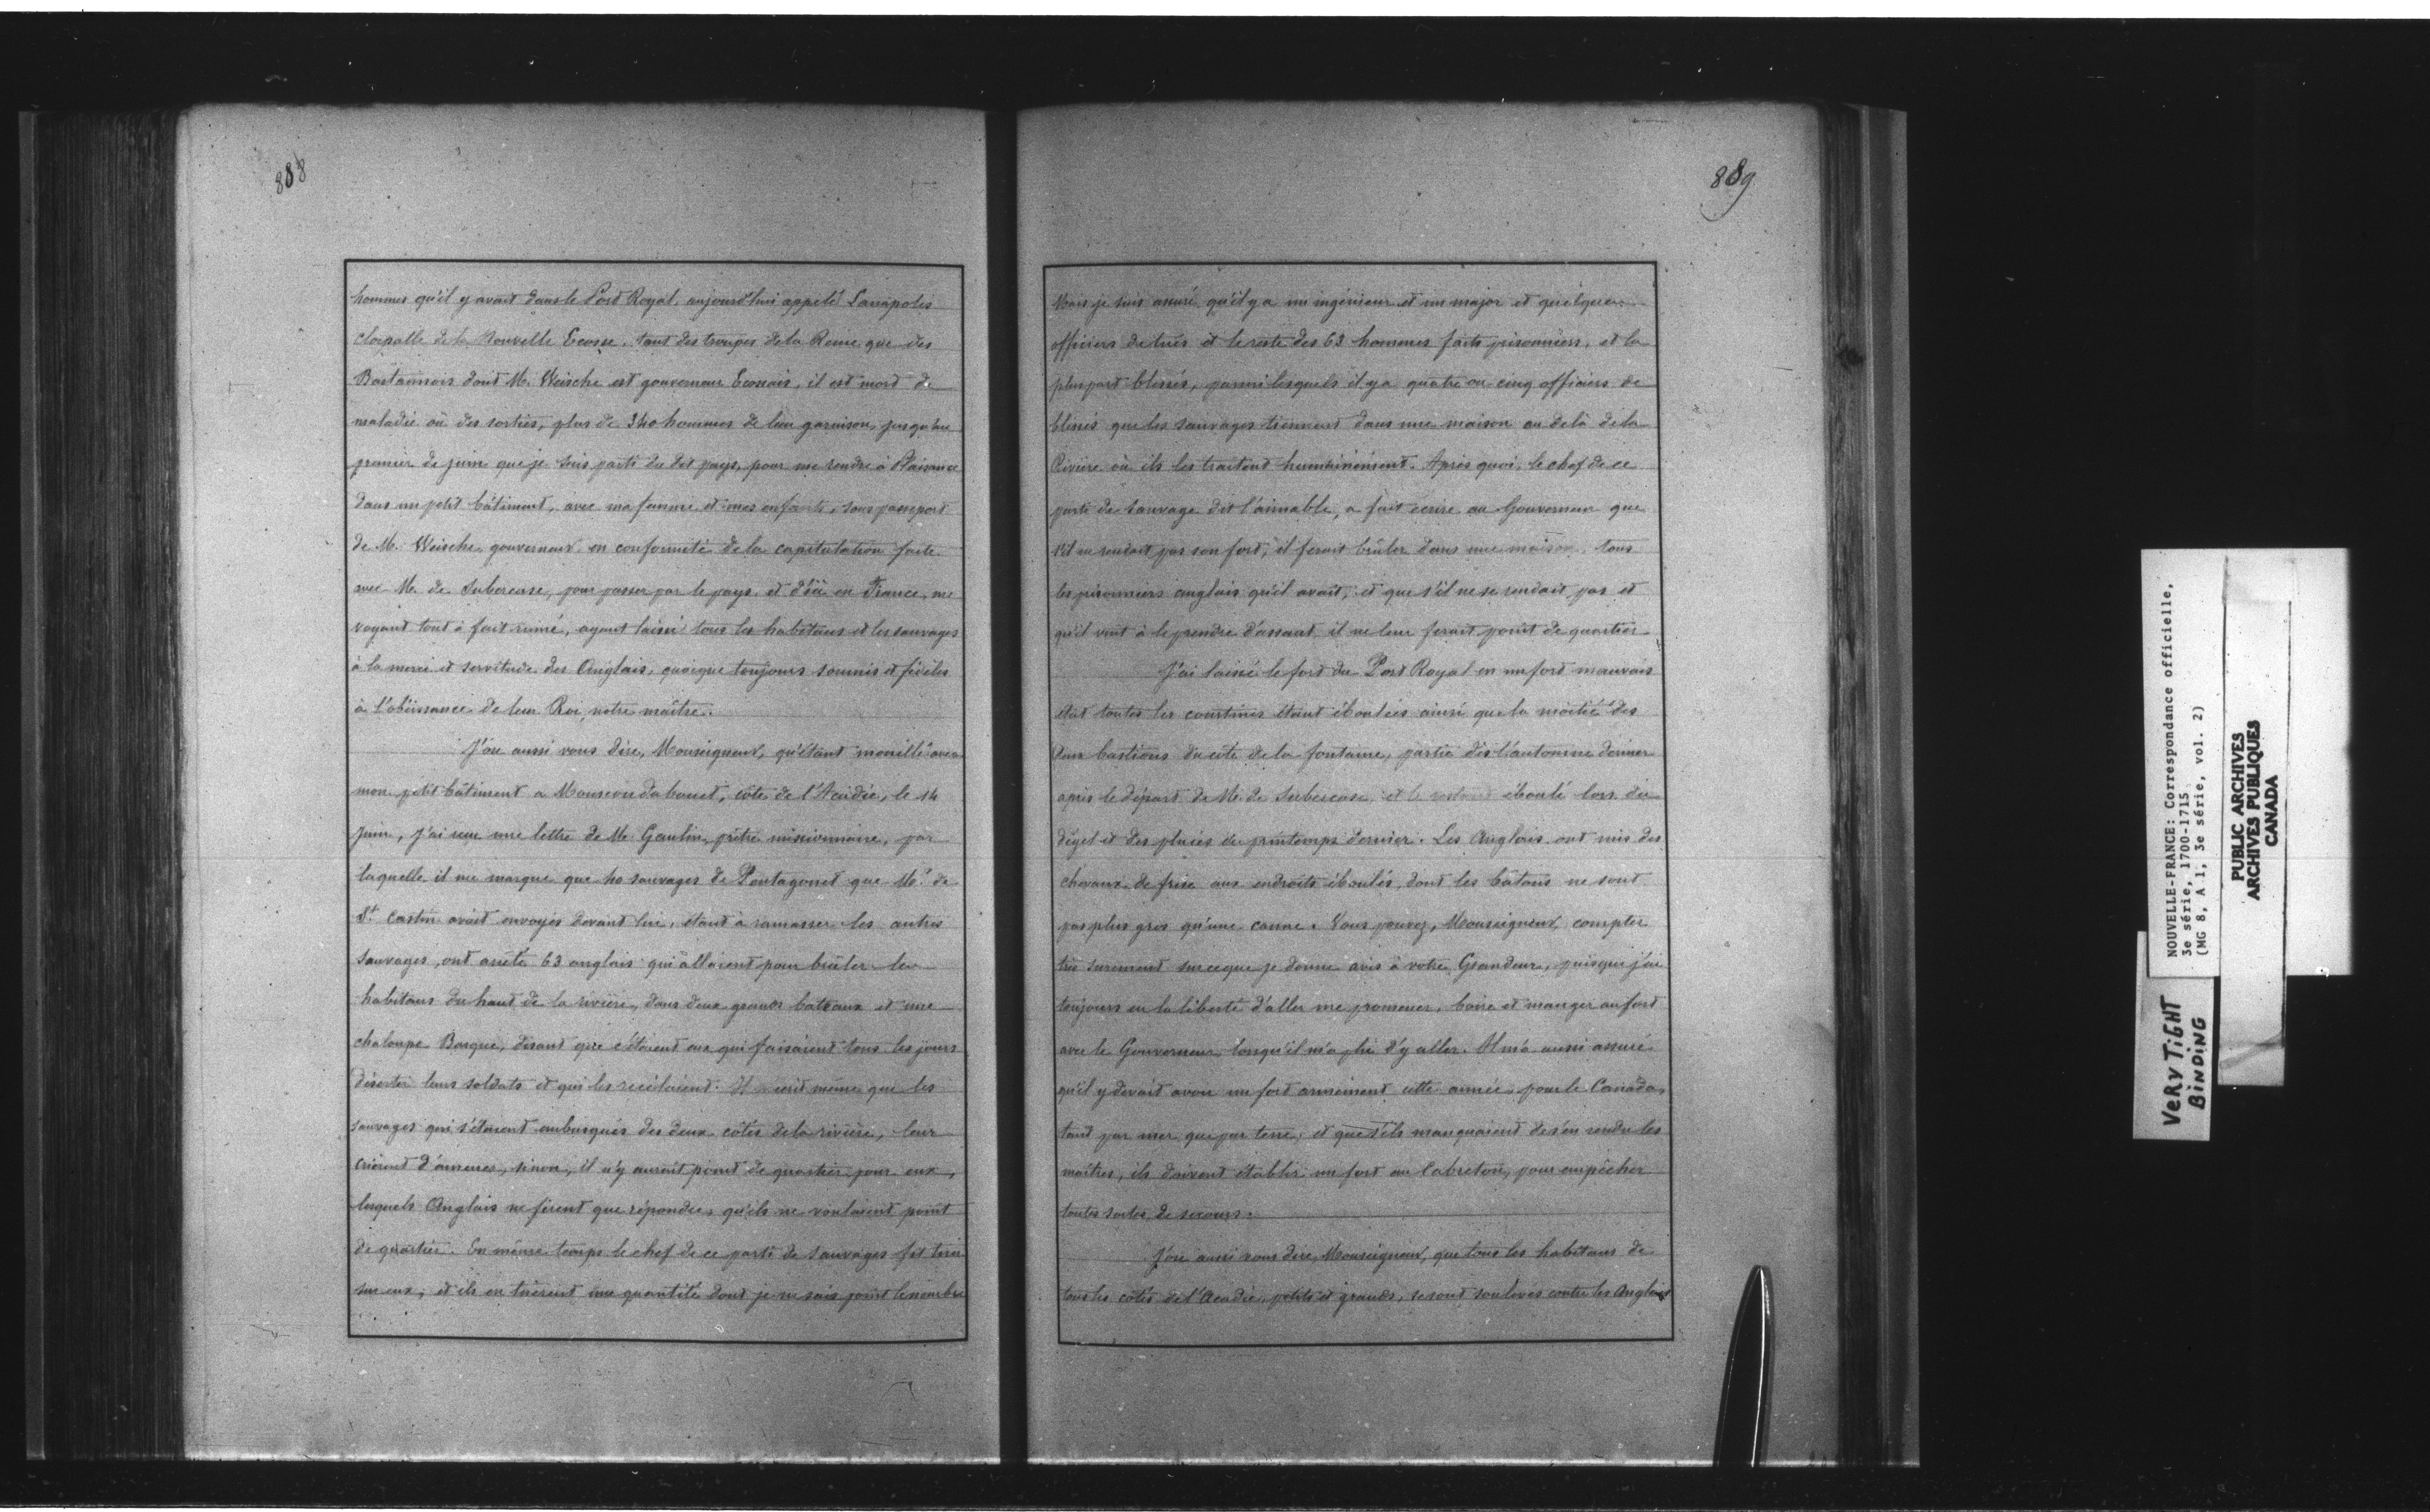 888
hommes qu'il y avait dans le Port Royal, aujourd'hui appelé Lanapolis
de la Nouvelle Ecosse, tant des troupes de la Reine que des
Bastannois dont M. Weische est gouverneur Ecossais, il est mort de
maladie où des sorties, plus de 340 hommes de leur garnison, jusqu'au
premier de juin que je suis parti du dit pays, pour me rendre à Plaisance
dans un petit bâtiment, avec ma femme et mes enfants, sous passeport
de M. Weische gouverneur en conformité de la capitulation faite
avec M. de Subercase, pour passer par le pays, et d'ici en France, me
voyant tout à fait ruiné, ayant laissé tous les habitans et les sauvages
à la merci et servitude des Anglais, quoique toujours soumis et fidèles
à l'obéissance de leur Roi, notre maître.
J'ose aussi vous dire, Monseigneur, qu'étant mouillé avec
mon petit bâtiment a côte de l'Acadie, le 14
juin, j'ai reçu une lettre de M. Gaulin, prêtre missionnaire, par
laquelle il me marque que 40 sauvages de Pentagouet que M. de
St. Castin avait envoyés devant lui, étant à ramasser les autres
Sauvages, ont arrêté 63 anglais qui allaient pour brûler les
habitans du haut de la rivière, dans deux grands bateaux et une
chaloupe Basque, disant que c'étaient eux qui faisaient tous les jours
déserter leurs soldats et qui les recélaient. Il même que les
sauvages qui s'étaient embusqués des deux côtés de la rivière, leur
crièrent d'amener, sinon, il n'y aurait point de quartier pour eux,
lesquels Anglais ne firent que répondre, qu'ils ne voulaient point
de quartier. En même temps le chef de ce parti de Sauvages fit tirer
sur eux, et ils en tuèrent une quantité dont je ne sais point le nombre
889
Mais je suis assuré qu'il y a un ingénieur et un major et quelques
officiers de tués et le reste des 63 hommes faits prisonniers, et la
pluspart blessés, parmi lesquels il y a quatre ou cinq officiers de
blessés que les sauvages tiennent dans une maison au delà de la
Rivière où ils les traitent humainement. Après quoi, le chef de ce
parti de Sauvage dit l'aimable, a fait écrire au Gouverneur que
s'il ne rendait pas son fort, il ferait brûler dans une maison tous
les prisonniers anglais qu'il avait, et que s'il ne se rendait pas et
qu'il vint à le prendre d'assaut, il ne leur ferait point de quartier
J'ai laissé le fort du Port Royal en un fort mauvais
état toutes les courtines étant éboulées ainsi que la moitié des
deux bastions du côté de la fontaine, partie dès l'automne dernier
après le départ de M. de Subercase et le restant éboulé lors du
dégel et des pluies du printemps dernier. Les Anglais ont mis des
chevaux de frise aux endroits éboulés, dont les bâtons ne sont
pas plus gros qu'une canne. Vous pouvez, Monseigneur, compter
très surement sur ce que je donne avis à votre Grandeur, puisque j'ai
toujours eu la liberté d'aller me promener, boire et manger au fort
avec le Gouverneur lorsqu'il m'a plu d'y aller. Il m'a aussi assuré
qu'il y devait avoir un fort armement cette année pour le Canada,
tant par mer que par terre, et que s'ils manquaient de s'en rendre les
maîtres, ils doivent établir un fort au Cabreton, pour empêcher
toutes sortes de secours.
J'ose aussi vous dire, Monseigneur, que tous les habitans de
tous les côtés de l'Acadie, petits et grands, se sont soulevés contre les Anglais
NOUVELLE-FRANCE: Correspondance officielle,
3e série, 1700-1715
(MG 8, A 1, 3e série, vol. 2)
PUBLIC ARCHIVES
ARCHIVES PUBLIQUES
CANADA
VERY TiGHT
BiNDiNG